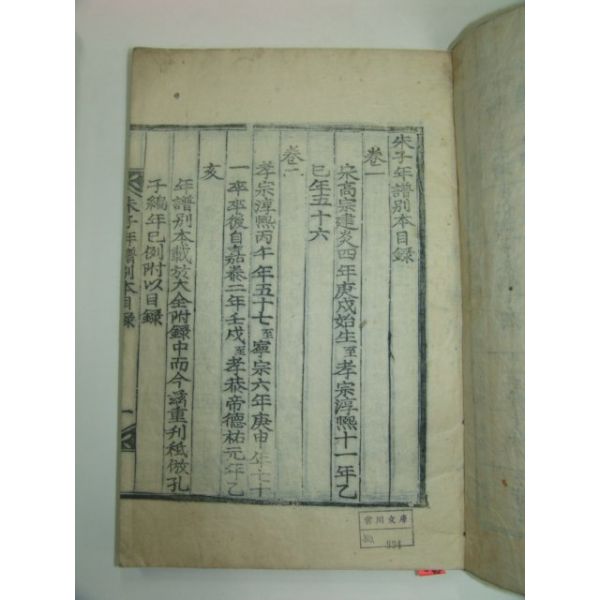 朱子年譜別本目錄
卷一
宋高宗建炎四年庚戌始生至孝宗淳熙十一年乙
巳年五十六
卷二
孝宗淳熙丙午年五十七至寧宗六年庚申年七十
一卒卒後自嘉泰二年壬戌至孝恭帝德祐元年乙
亥
年譜別本載於大全附錄中而今講重刊秪倣孔
子編年已例附以目錄
朱子年譜別本目錄
一
雲川文庫
NO. 994